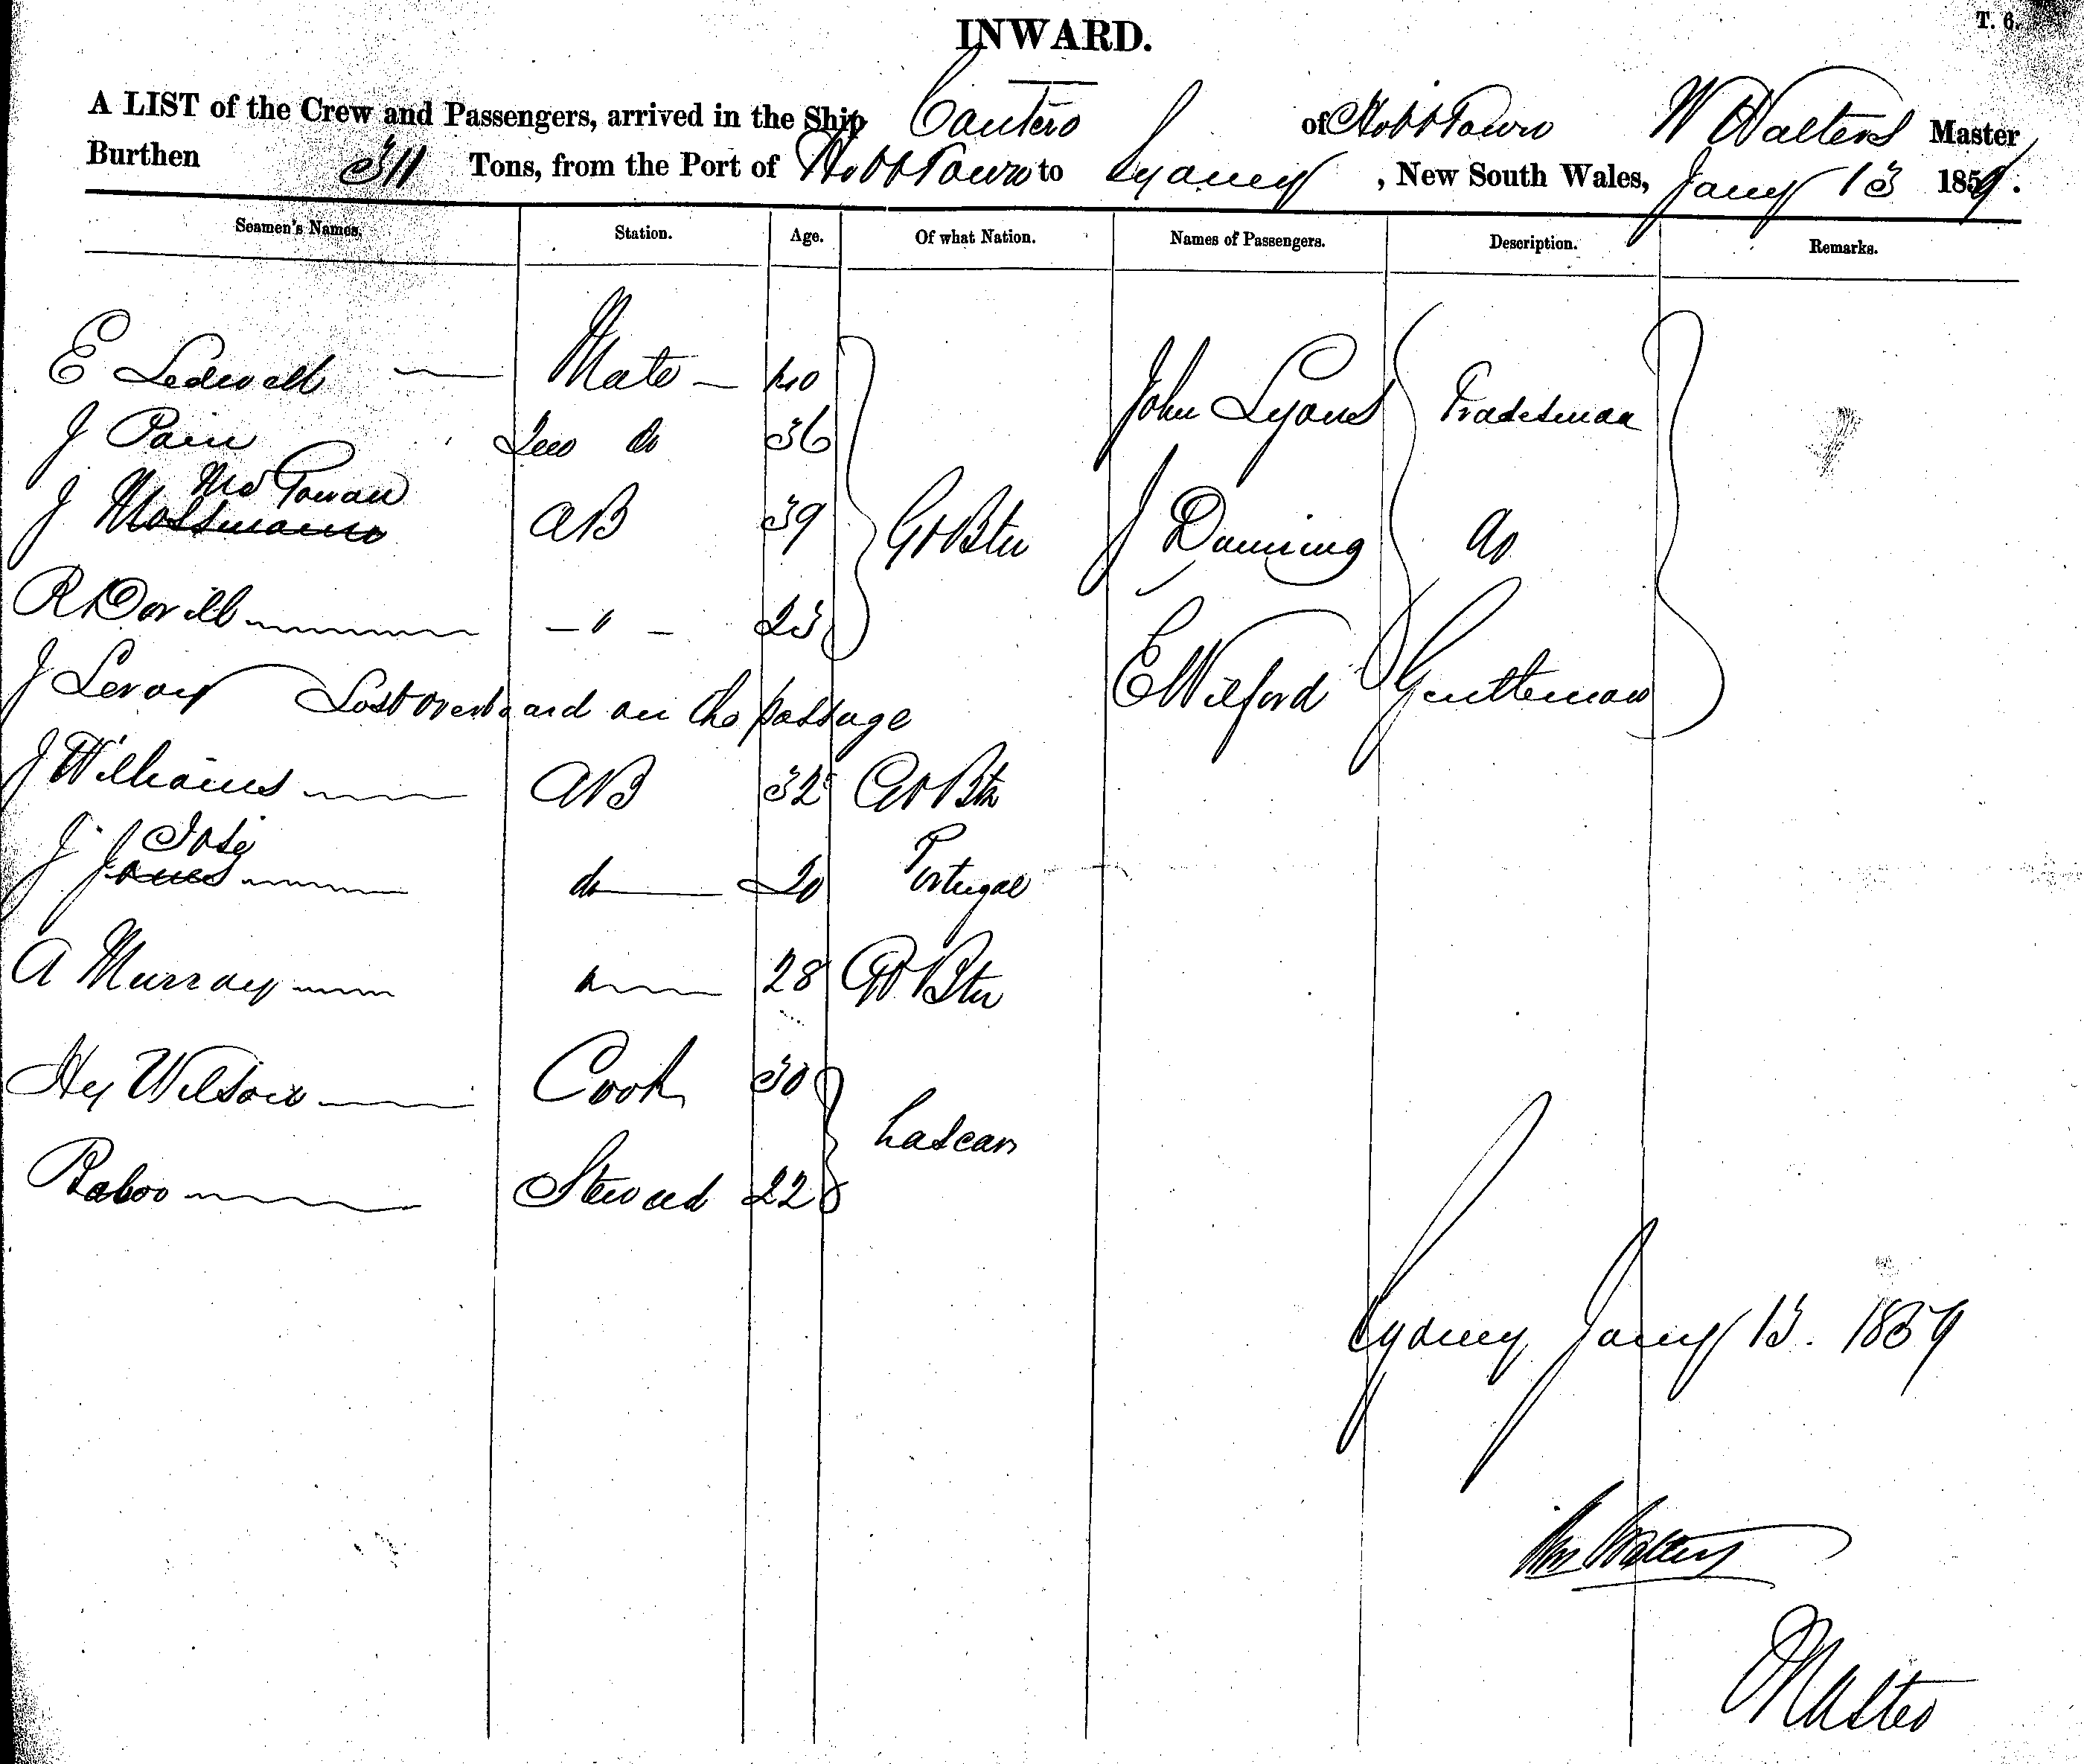 T. 6.
INWARD.
A LIST of the Crew and Passengers, arrived in the Ship Cantero of Hobt Town W Walters Master
Burthen 311 Tons, from the Port of Hobt Town to Sydney, New South Wales, Jany 13 1859.
Seamen's Names. Station. Age. Of what Nation. Names of Passengers. Description. Remarks.
E Ledwell Mate 40 John Lyons Tradesman
J Pain do 36
J Mossmann AB 39 Gt Btn J Dunning do
R Dovill " 23
J Leroy Lost overboard on the passage E Wilford Gentleman
J Williams AB 32 Gt Btn
Jose
J Jones do 20 Portugal
A Murray 28 Gt Btn
Hy Wilson Cook 30
Lascars
Baboo Steward 22
Sydney Jany 13. 1859
Wm Walters
Master